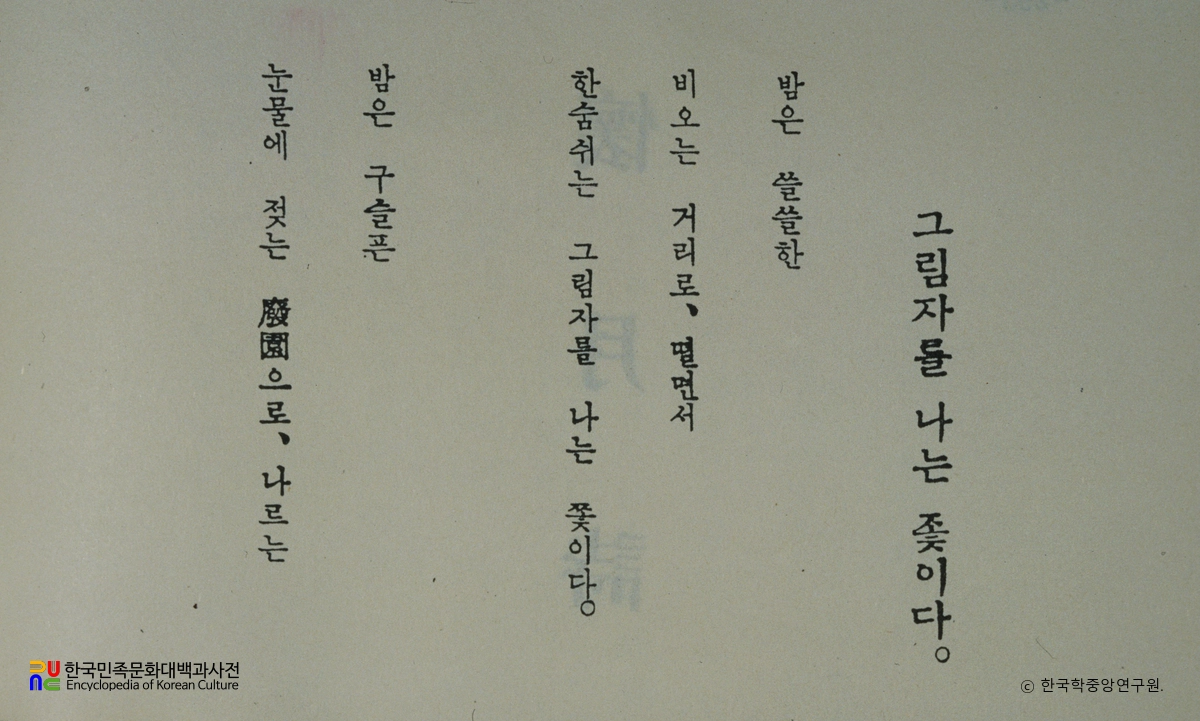 그림자를 나는 좇이다。
밤은 쓸쓸한
비오는 거리로、떨면서
한숨쉬는 그림자를 나는 쫓이다。
밤은 구슬픈
눈물에 젖는 廢園으로、나르는
한국민족문화대백과사전
Encyclopedia of Korean Culture
ⓒ 한국학중앙연구원.